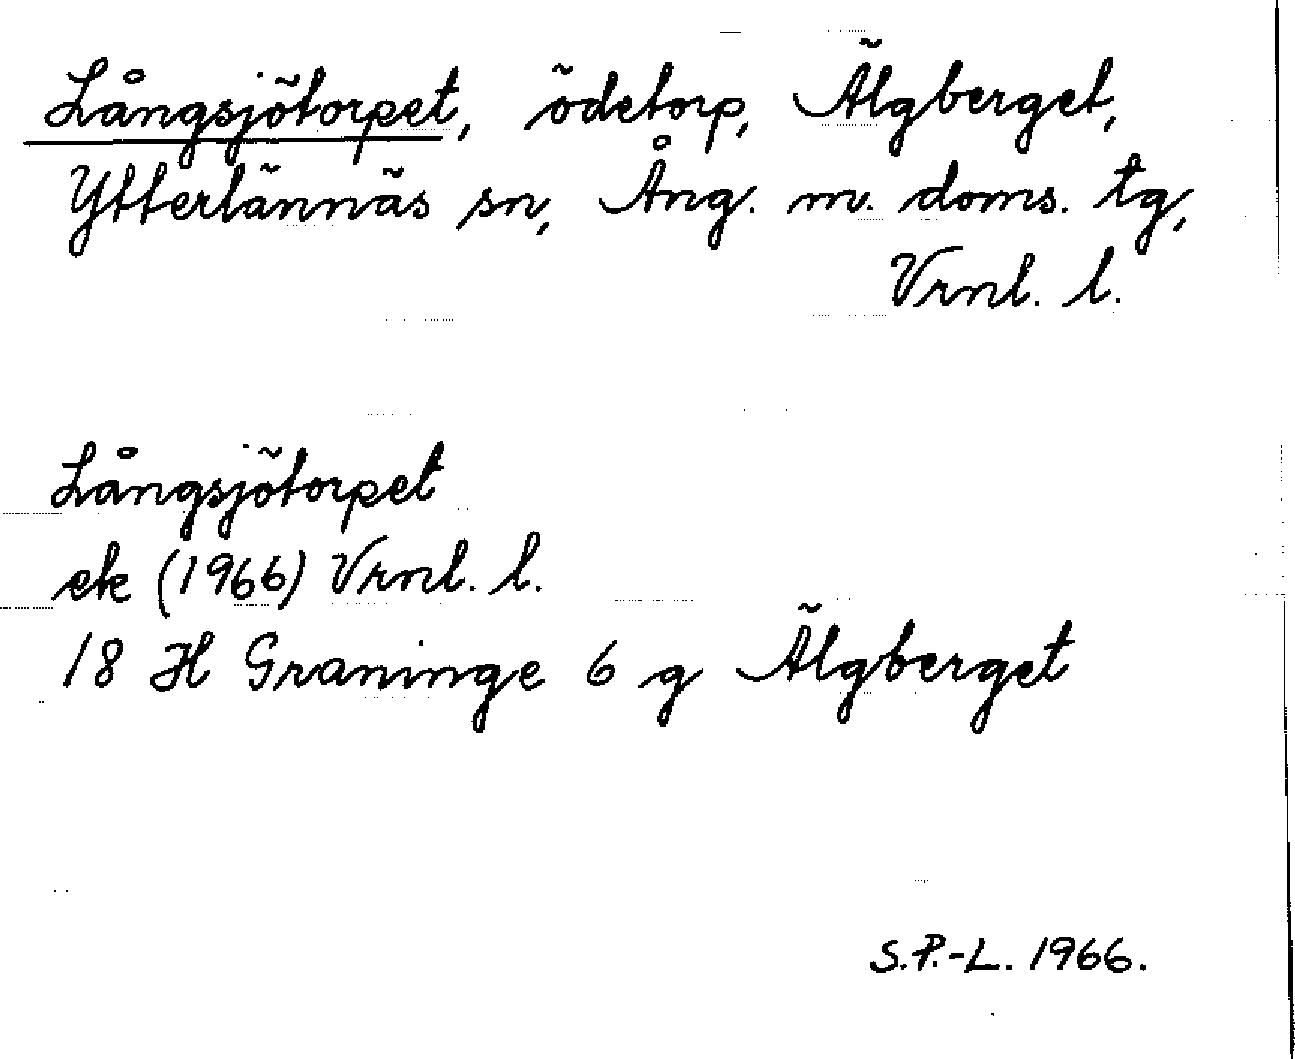 Långsjötorpet, ödetorp, Älgberget,
Ytterlännäs sn, Ång. m. doms. tg,
Vrnl. l.
Långsjötorpet
ek (1966) Vrnl. l.
18 H Graninge 6 g Älgberget
S.P.-L. 1966.